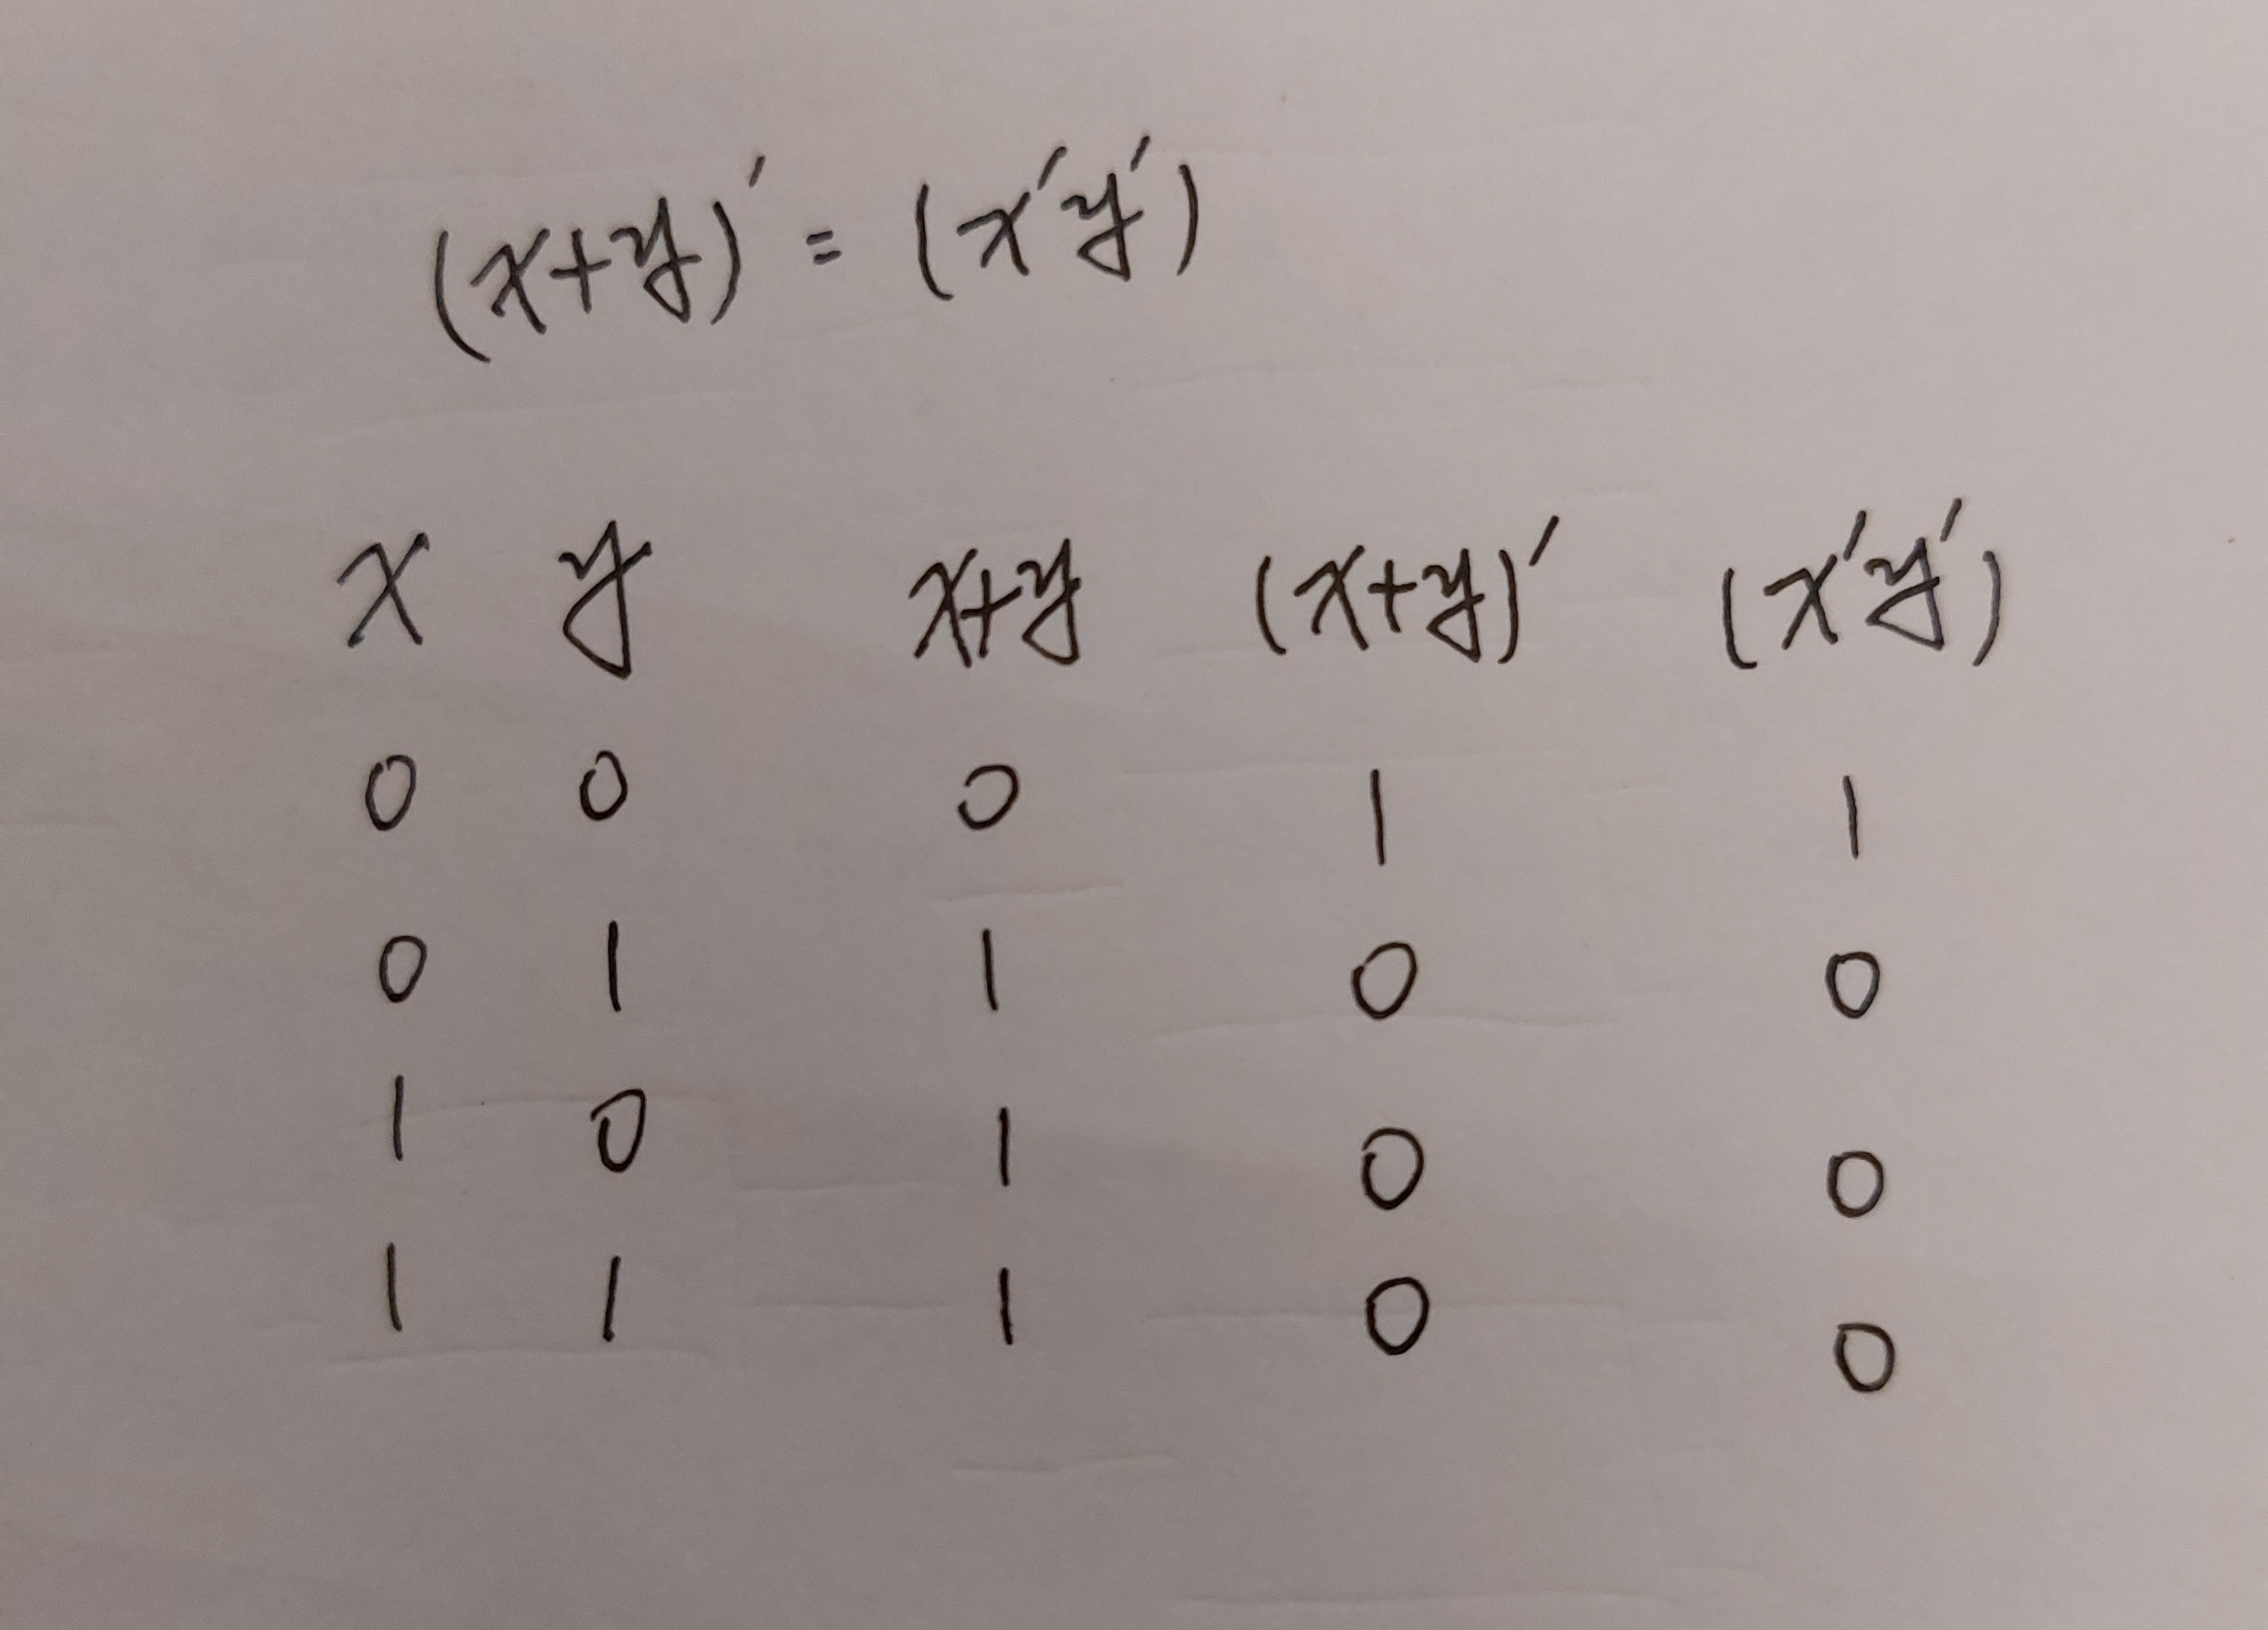 (x+y)' = (x'y')
x y x+y (x+y)' (x'y')
0 0 0 1 1
0 1 1 0 0
1 0 1 0 0
1 1 1 0 0